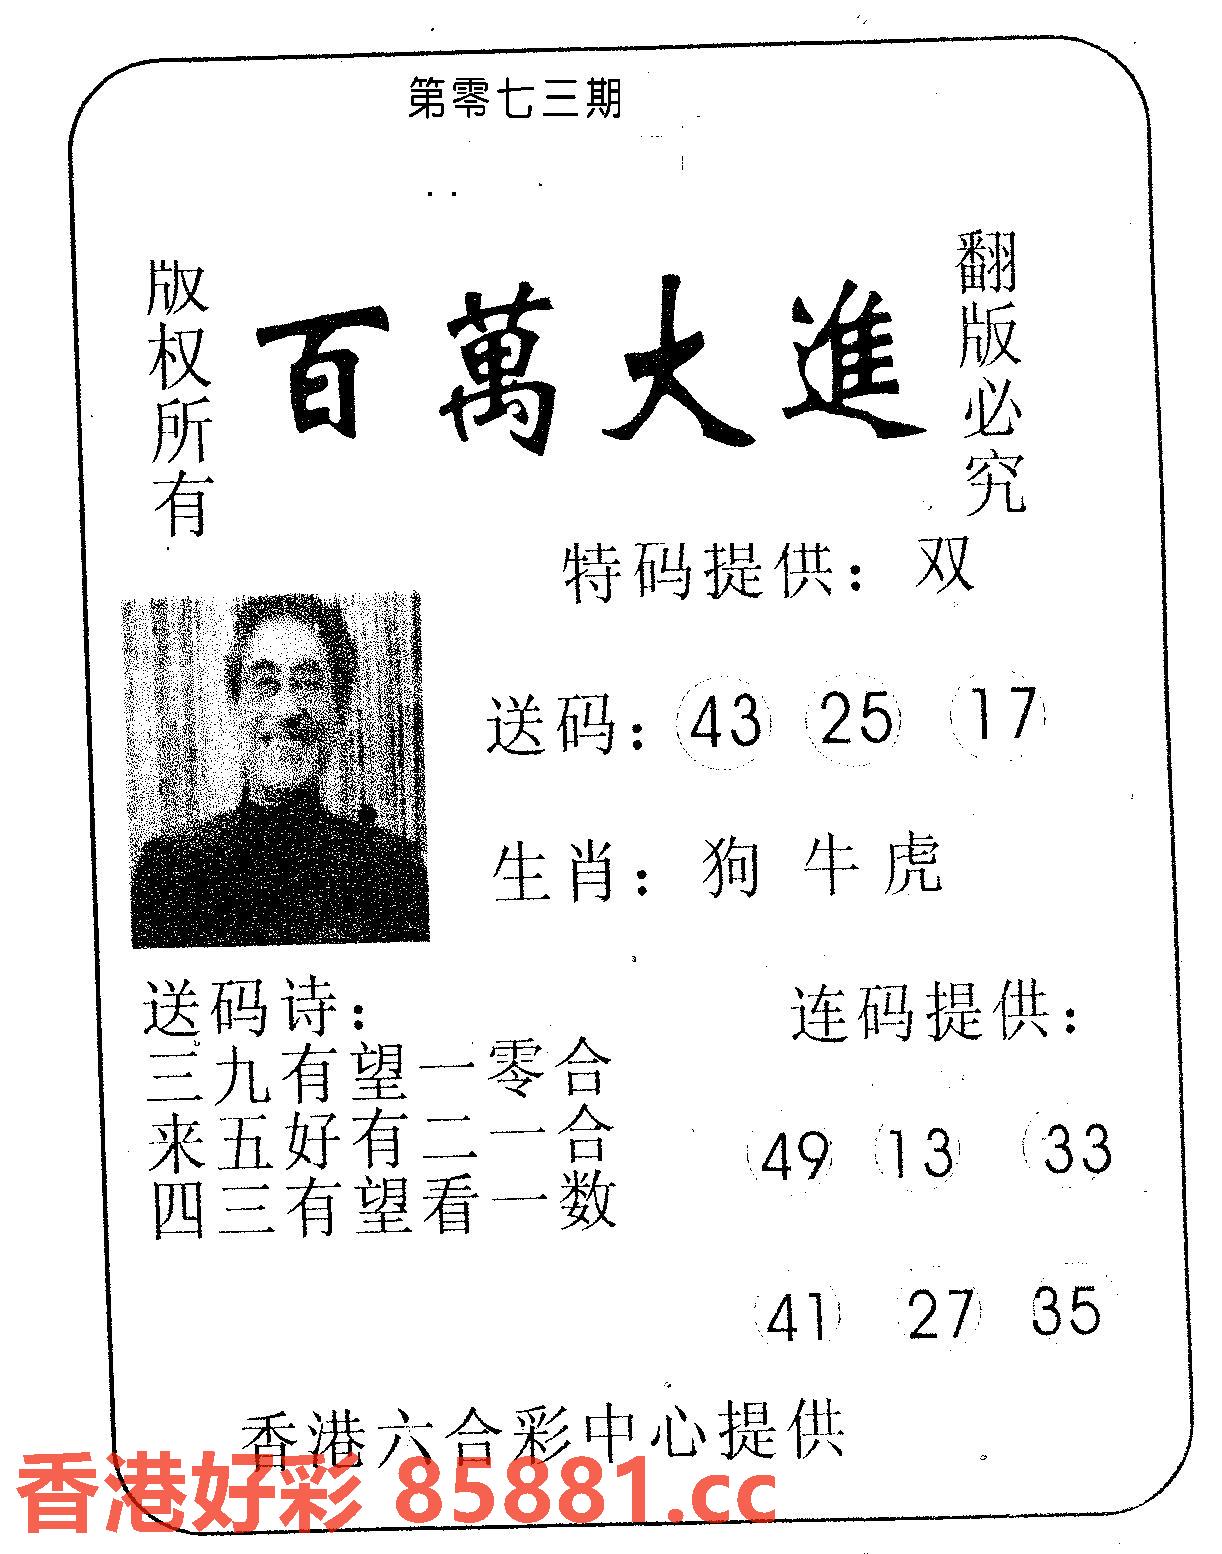 第零七三期
版权所有
百萬大進
翻版必究
特码提供：双
送码：43 25 17
生肖：狗 牛 虎
送码诗：
三九有望一零合
来五好有二一合
四三有望看一数
连码提供：
49 13 33
41 27 35
香港六合彩中心提供
香港好彩 85881.cc